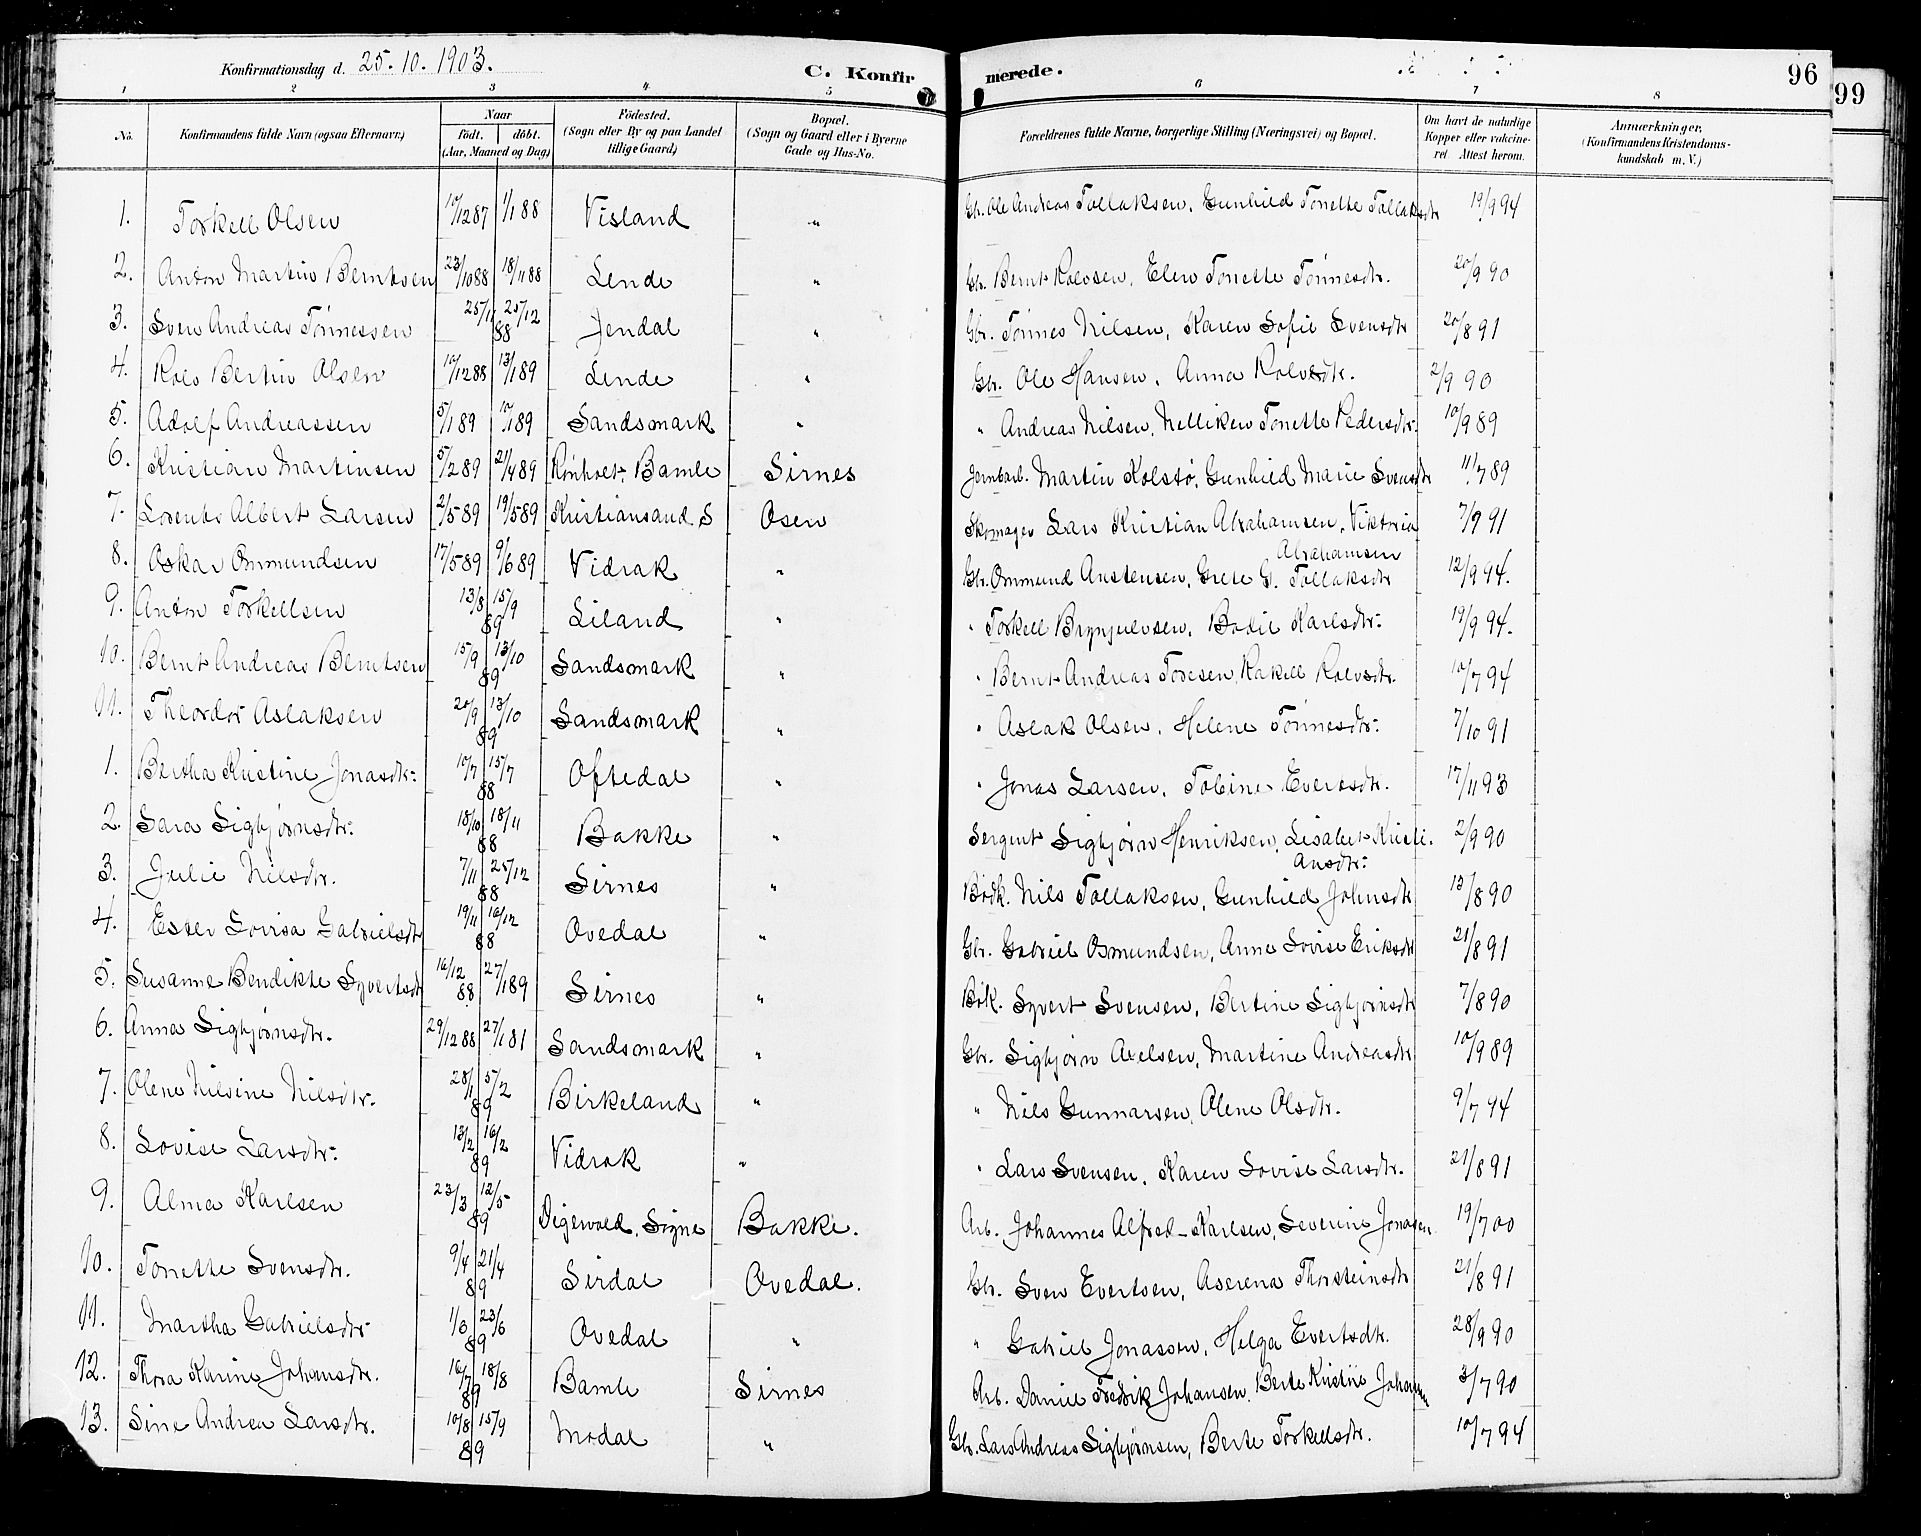 Konfirmationsdag d. 25.10.1903. C. Konfirmerede. 96
99
1 2 3 4 5 6 7 8
No. Konfirmandens fulde Navn (ogsaa Efternavn.) Naar födt. döbt. (Aar, Maaned og Dag) Födested. (Sogn eller By og paa Landet tillige Gaard) Bopæl. (Sogn og Gaard eller i Byerne Gade og Hus-No. Forældrenes fulde Navne, borgerlige Stilling (Næringsvei) og Bopæl. Om havt de naturlige Kopper eller vakcineret Attest herom. Anmærkninger. (Konfirmandens Kristendomskundskab m. V.)
1. Torkell Olsen 10/12 87 1/1 88 Visland " Gbr. Ole Andreas Tollaksen, Gunhild Tonette Tollaksdtr 19/9 94
2. Anton Martin Berntsen 23/10 88 18/11 88 Lende " Gbr. Bernt Rolvsen, Elen Tonette Tönnesdtr. 20/9 90
3. Sven Andreas Tönnessen 25/11 25/12 88 Jendal " Gbr. Tönnes Nilsen, Karen Sofie Svensdtr 20/8 91
4. Rolv Bertin Olsen 10/12 88 13/1 89 Lende " Gbr. Ole Hansen, Anna Rolvsdtr. 2/9 90
5. Adolf Andreassen 5/1 89 10/1 89 Sandsmark " " Andreas Nilsen, Nelliken Tonette Pedersdtr. 10/9 89
6. Kristian Martinsen 5/2 89 21/4 89 Rönholt, Bamle Sirnes Jernbarb. Martin Kolstö, Gunhild Marie Svensdtr 11/7 89
7. Lorents Albert Larsen 2/5 89 19/5 89 Kristiansand S Osen Skomager Lars Kristian Abrahamsen, Viktoria Abrahamsen 7/9 91
8. Oskar Ommundsen 17/5 89 9/6 89 Vidrak " Gbr. Ommund Anstensen, Grete G. Tollaksdtr 12/9 94.
9. Anton Torkellsen 13/8 15/9 89 Liland " " Torkell Brynjulvsen, Bodil Karlsdtr. 19/9 94.
10. Bernt Andreas Berntsen 15/9 13/10 89 Sandsmark " " Bernt Andreas Toresen, Rakell Rolvsdtr. 10/7 94
11. Theodor Aslaksen 20/9 13/10 89 Sandsmark " " Aslak Olsen, Helene Tönnesdtr. 7/10 91
1. Bertha Kristine Jonasdtr. 10/7 15/7 88 Oftedal " " Jonas Larsen, Tobine Evertsdtr. 17/11 93
2. Sara Sigbjörnsdtr. 18/10 18/11 88 Bakke " Sergent Sigbjörn Henriksen, Lisabet Kristiansdtr. 2/9 90
3. Julie Nilsdtr. 7/11 25/12 88 Sirnes " Bödk. Nils Tollaksen, Gunhild Johnsdtr 13/8 90
4. Ester Lovisa Gabrielsdtr 19/11 16/12 88 Ovedal " Gbr. Gabriel Osmundsen, Anne Lovise Eriksdtr 21/8 91
5. Susanne Bendikte Syvertsdtr 16/12 88 27/1 89 Sirnes " Bdk. Syvert Svensen, Bertine Sigbjörnsdtr 7/8 90
6. Anna Sigbjörnsdtr. 29/12 88 27/1 81 Sandsmark " Gbr. Sigbjörn Axelsen, Martine Andreasdtr 10/9 89
7. Olene Nilsine Nilsdtr. 28/1 5/2 89 Birkeland " " Nils Gunnarsen, Olene Olsdtr. 9/7 94
8. Lovise Larsdtr. 13/2 16/2 89 Vidrak " " Lars Svensen, Karen Lovise Larsdtr. 21/8 91
9. Alma Karlsen 23/3 12/5 89 Digevold, Signe Bakke. Arb. Johannes Alfred Karlsen, Severine Jonasen 19/7 00
10. Tonette Svensdtr. 9/4 21/4 89 Sirdal Ovedal. Gbr. Sven Evertsen, Aserena Thorsteinsdtr 21/8 91
11. Martha Gabrielsdtr 1/6 23/6 89 Ovedal " " Gabriel Jonassen, Helga Evertsdtr. 28/9 90
12. Thora Karine Johansdtr. 16/7 18/8 89 Bamle Sirnes Arb. Daniel Fredrik Johansen, Berte Kristine Johansen 3/7 90
13. Sine Andrea Larsdtr. 10/8 15/9 89 Modal " Gbr. Lars Andreas Sigbjörnsen, Berte Torkellsdtr. 10/7 94